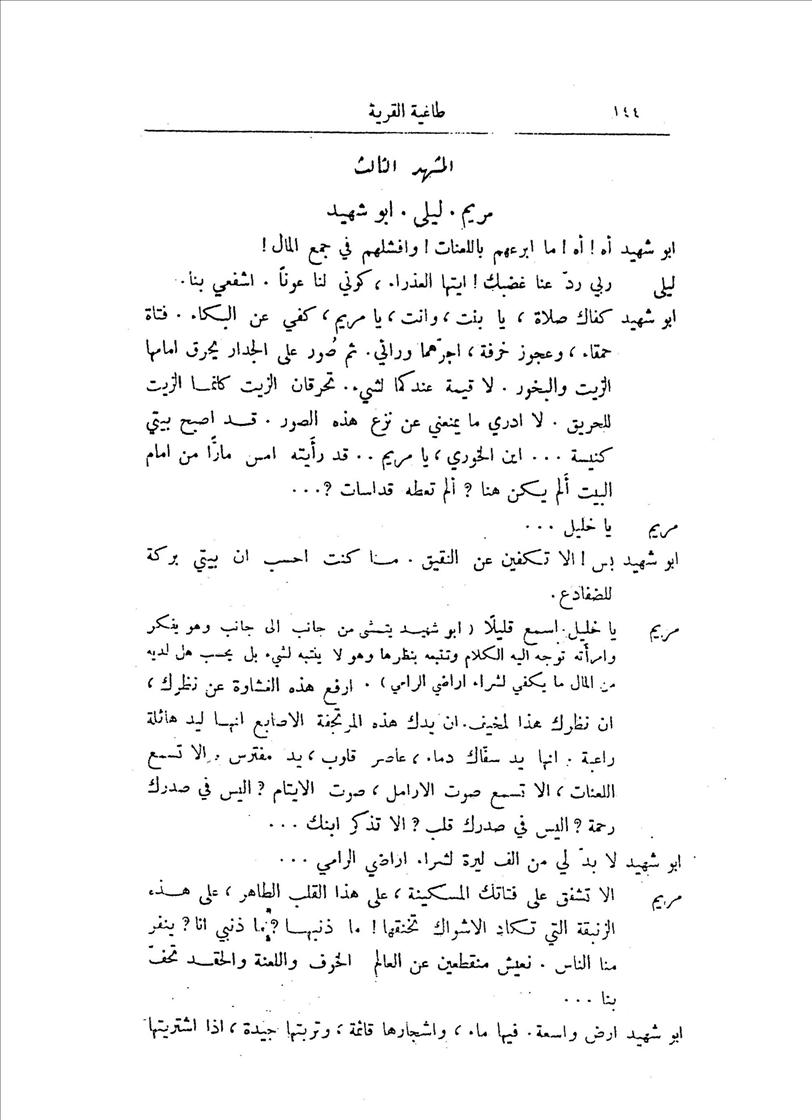 ١٤٤ طاغية القرية
المشهد الثالث
مريم . ليلى . ابو شهيد
ابو شهيد أه ! أه ! ما ابرعهم باللعنات ! وافشلهم في جمع المال !
ليلى ربي ردّ عنا غضبك ! ايتها العذراء ، كوني لنا عوناً . اشفعي بنا .
ابو شهيد كفاك صلاة ، يا بنت ، وانت ، يا مريم ، كفي عن البكاء . فتاة
حمقاء ، وعجوز خرفة ، اجرّهما ورائي . ثم صُور على الجدار يحرق امامها
الزيت والبخور . لا قيمة عندكما لشيء . تحرقان الزيت كانما الزيت
للحريق . لا ادري ما يمنعني عن نزع هذه الصور . قد اصبح بيتي
كنيسة ... اين الخوري ، يا مريم .. قد رأيته امس مارًّا من امام
البيت ألم يكن هنا ? ألم تعطه قداسات ? ...
مريم يا خليل ...
ابو شهيد بس ! الا تكفين عن النقيق . ما كنت احسب ان بيتي بركة
للضفادع .
مريم يا خليل . اسمع قليلًا ( ابو شهيد يتمشى من جانب الى جانب وهو يفكر
وامرأته توجه اليه الكلام وتتبعه بنظرها وهو لا ينتبه لشيء بل يحسب هل لديه
من المال ما يكفي لشراء اراضي الرامي ) . ارفع هذه الغشاوة عن نظرك ،
ان نظرك هذا لمخيف . ان يدك هذه المرتجفة الاصابع انها ليد هائلة
راعبة . انها يد سفّاك دماء ، عاصر قلوب ، يد مفترس . الا تسمع
اللعنات ، الا تسمع صوت الارامل ، صوت الايتام ? اليس في صدرك
رحمة ? اليس في صدرك قلب ? الا تذكر ابنك ...
ابو شهيد لا بدّ لي من الف ليرة لشراء اراضي الرامي ...
مريم الا تشفق على فتاتك المسكينة ، على هذا القلب الطاهر ، على هذه
الزنبقة التي تكاد الاشواك تخنقها ! ما ذنبها ? ما ذنبي انا ? ينفر
منا الناس . نعيش منقطعين عن العالم الخوف واللعنة والحقد تحفّ
بنا ...
ابو شهيد ارض واسعة . فيها ماء ، واشجارها قائمة ، وتربتها جيدة ، اذا اشتريتها